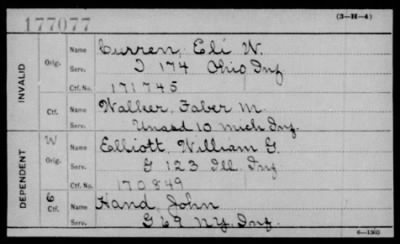 177077
(3-H-4)
INVALID
Orig.
Name Curren, Eli W.
Serv. I 174 Ohio Inf
Ctf. No. 171745
Ctf.
Name Walker, Faber M.
Serv. Unasd 10 Mich Inf.
DEPENDENT
W
Orig.
Name Elliott, William G.
Serv. G 123 Ill. Inf
Ctf. No. 170849
C
Ctf.
Name Hand, John
Serv. G 69 N.Y. Inf.